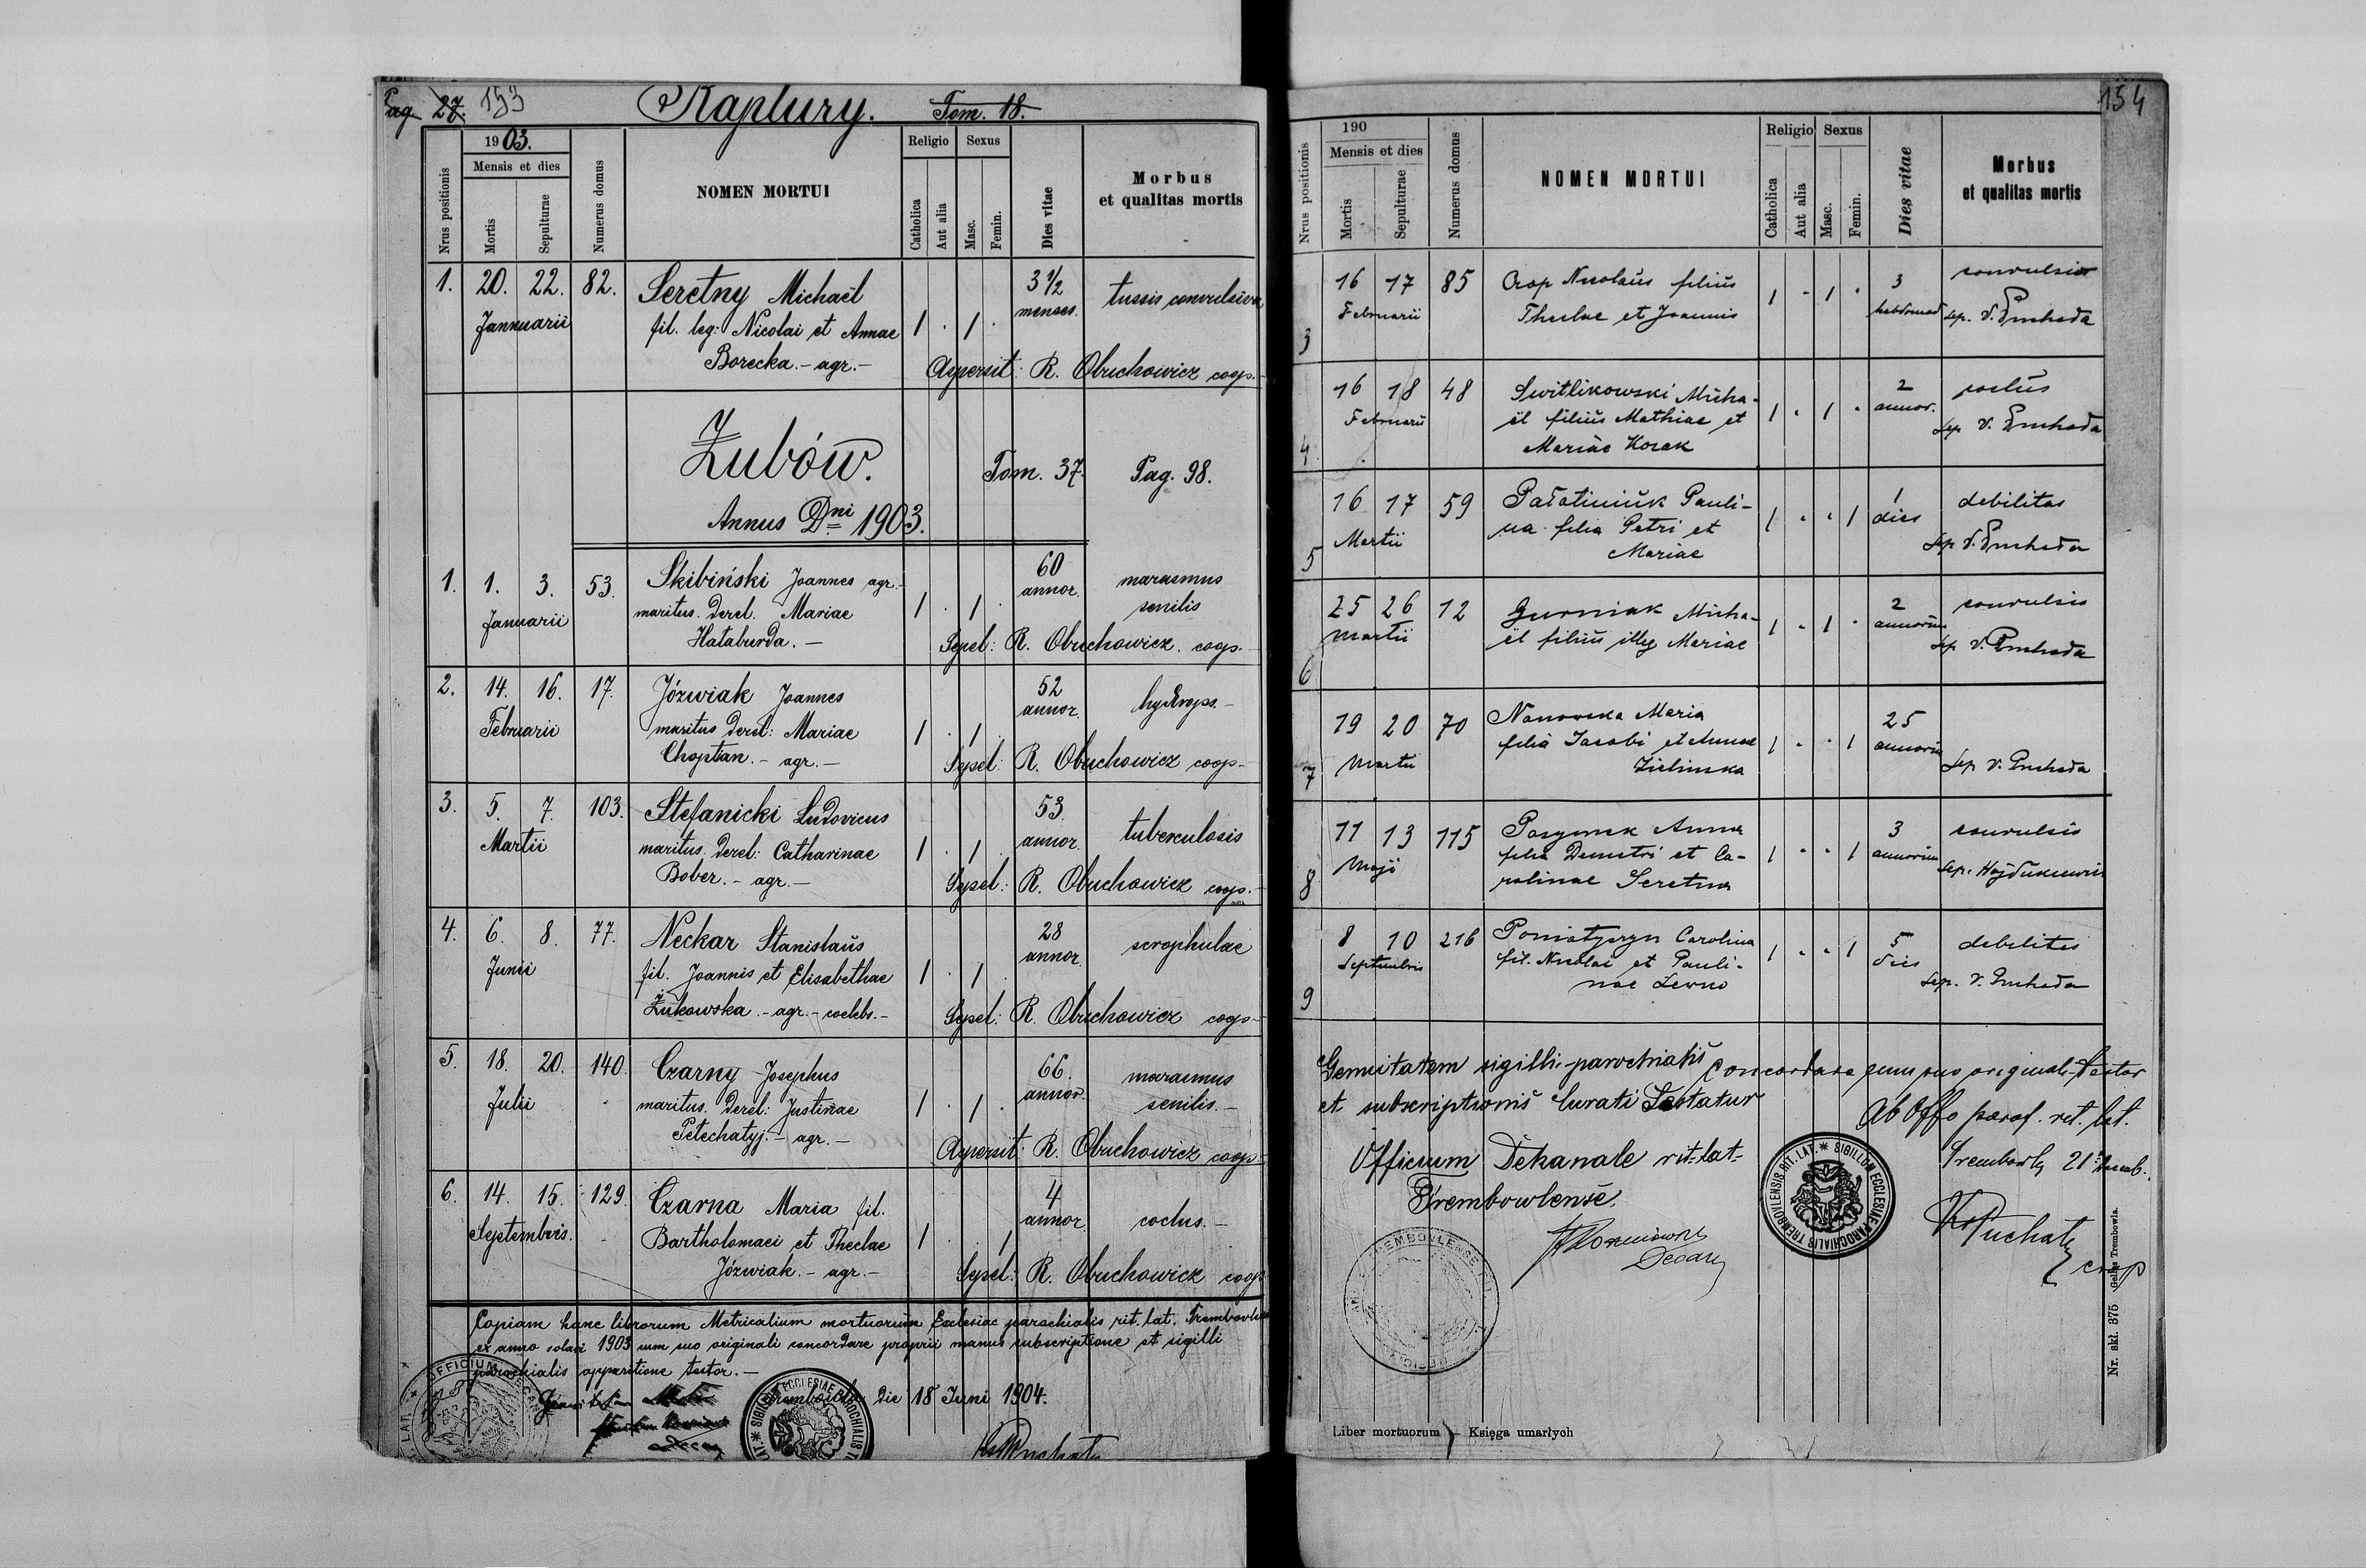 Pag. 27. 153
Kaplury. Tom. 18.
1903.
Mensis et dies
Nrus positionis
Mortis
Sepulturae
Numerus domus
NOMEN MORTUI
Religio
Sexus
Catholica
Aut alia
Masc.
Femin.
Dies vitae
Morbus
et qualitas mortis
1. 20. 22. 82. Seretny Michaël 3 1/2 tussis convulsiva
Jannuarii fil. leg: Nicolai et Annae 1 . 1 . menses.
Borecka. - agr. - Aspersit: R. Obuchowicz coop. -
Zubów.
Tom. 37. Pag. 98.
Annus Dni 1903.
1. 1. 3. 53. Skibiński Joannes agr. - 60 annor. marasmus
Januarii maritus. derel. Mariae 1 . 1 . senilis
Hataburda. - Sepel: R. Obuchowicz. coop. -
2. 14. 16. 17. Józwiak Joannes 52 annor. hydrops. -
Februarii maritus derel: Mariae 1 . 1 .
Choptian. - agr. - Sepel: R. Obuchowicz coop -
3. 5. 7. 103. Stefanicki Ludovicus 53. annor. tuberculosis
Martii maritus. derel: Catharinae 1 . 1 .
Bober. - agr. - Sepel: R. Obuchowicz coop. -
4. 6. 8. 77. Neckar Stanislaŭs 28 annor. scrophulae
Junii fil. Joannis et Elisabethae 1 . 1 .
Żukowska. - agr. - coelebs. - Sepel: R. Obuchowicz coop -
5. 18. 20. 140. Czarny Josephus 66. annor. marasmus
Julii maritus. derel: Justinae 1 . 1 . senilis. -
Petechatyj. - agr. - Aspersit: R. Obuchowicz coop -
6. 14. 15. 129. Czarna Maria fil. 4 annor. coctus. -
Septembris. Bartholomaei et Theclae 1 . . 1
Józwiak. - agr. - Sepel: R. Obuchowicz coop
Copiam hanc librorum Metricalium mortuorum Ecclesiae parochialis rit. lat.
ex anno solari 1903 cum suo originali concordare proprii manus subscriptione et sigilli
parochialis appositione testor. -
die 18 Juni 1904.
154
190
Mensis et dies
Nrus positionis
Mortis
Sepulturae
Numerus domus
NOMEN MORTUI
Religio
Sexus
Catholica
Aut alia
Masc.
Femin.
Dies vitae
Morbus
et qualitas mortis
3 16 17 85 Crop Nicolaŭs filiŭs 3 convulsio
Februarii Theclae et Joannis 1 . 1 . hebdomad sep. V.
4 16 18 48 Switlikowski Micha- 2
Februarii ël filiŭs Mathiae et 1 . 1 . annor. sep V.
Mariae Kozak
5 16 17 59 Pauli- 1 debilitas
Martii na filia Petri et 1 . . 1 dies sep V.
Mariae
6 25 26 12 Gurniak Micha- 2 convulsio
Martii ël filiŭs illeg Mariae 1 . 1 . annorum sep V.
7 19 20 70 Nanowska Maria 25
filia Jacobi et Annae 1 . . 1 annorum
Martii Zielinska sep V.
8 11 13 115 Anna 3 convulsio
Maji filia Demetri et Ca- 1 . . 1 annorum sep.
rolinae Seretna
9 8 10 216 Carolina 5 debilitas
Septembris fil. Nicolai et Pauli- 1 . . 1 dies sep. V.
nae
sigilli parochialis Concordare cum suo originali testor
et subscriptionis Curati testatur
Ab Offo paraf. rit. lat.
Officium Dekanale rit. lat.
Trembowlense.
21
Decan
SIGILLUM ECCLESIAE PAROCHIALIS TREMBOVLENSIS RIT. LAT.
coop
Nr. skł. 375
Liber mortuorum - Księga umarłych